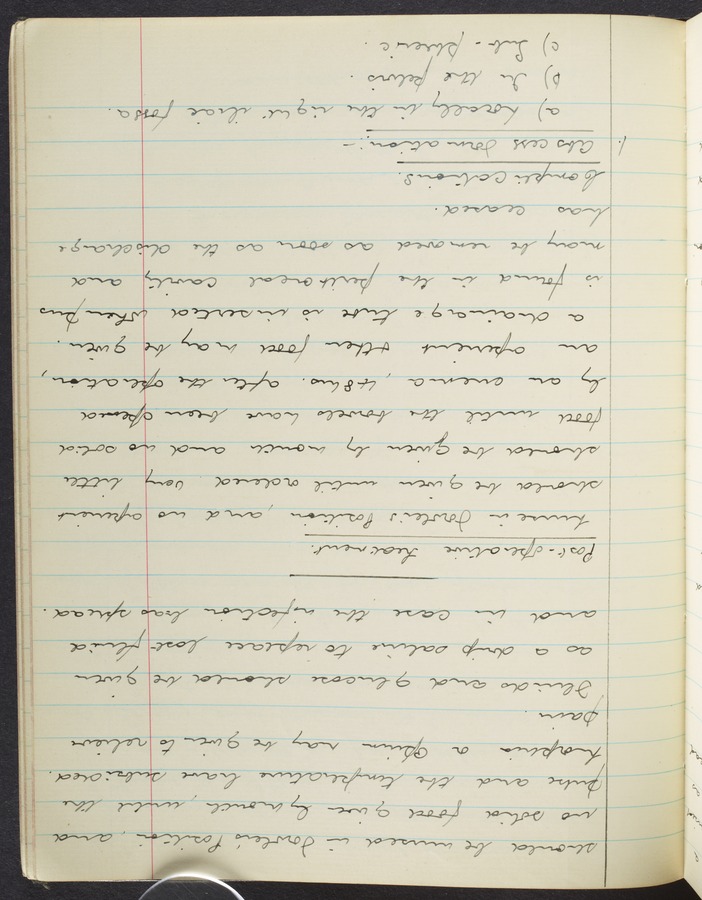 should be nursed in Fowler's Position, and
no solid food given by mouth, until the
pulse and the temperature have subsided.
Morphia or Opium may be given to relieve
pain.
Fluids and glucose should be given
as a drip saline to replace lost fluid
and in case the infection has spread.
Post-operative treatment.
Nurse in Fowler's Position, and no aperient
should be given until ordered. Very little
should be given by mouth and no solid
food until the bowels have been opened
by an enema, 48 hrs. after the operation,
an aperient then may be given.
a drainage tube is inserted when pus
is found in the peritoneal cavity and
may be removed as soon as the discharge
has ceased.
Complications.
1. Abscess Formation:-
a) Locally in the right iliac fossa.
b) In the pelvis.
c) Sub-phrenic.